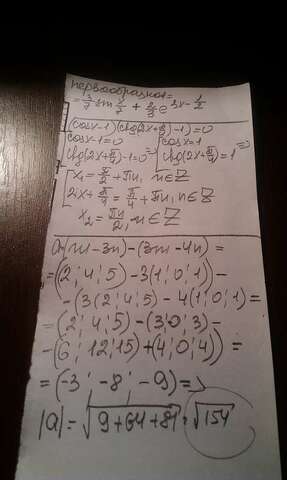 первообразная=
= 3/7 sin x/7 + 2/3 e 3x - 1/2
(cosx-1)(ctg(2x+π/4)-1)=0
cosx-1=0 cosx=1 =>
ctg(2x+π/4)-1=0 => ctg(2x+π/4)=1
x₁=π/2+πn, n∈Z
2x+π/4=π/4+πn, n∈Z
x₂=πn/2, n∈Z
a=(m-3n)-(3m-4n)=
=((2;4;5)-3(1;0;1))-
-(3(2;4;5)-4(1;0;1)=
=(2;4;5)-(3;0;3)-
-(6;12;15)+(4;0;4))=
=(-3;-8;-9)=>
|a|=√9+64+81=√154